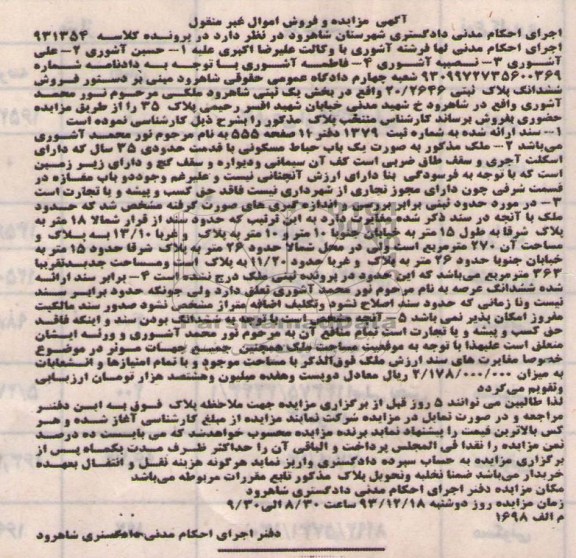 آگهی مزایده و فروش اموال غیر منقول
اجرای احکام مدنی دادگستری شهرستان شاهرود در نظر دارد در پرونده کلاسه ۹۳۱۳۵۳
اجرای احکام مدنی لها فرشته آشوری با وکالت علیرضا اکبری علیه ۱- حسین آشوری ۲- علی
آشوری ۳- نصیبه آشوری ۴- فاطمه آشوری با توجه به دادنامه شماره
۹۳۰۹۹۷۲۷۳۵۶۰۰۳۶۹ شعبه چهارم دادگاه عمومی حقوقی شاهرود مبنی بر دستور فروش
ششدانگ پلاک ثبتی ۲۰/۲۶۴۶ واقع در بخش یک ثبتی شاهرود ملکی مرحوم نور محمد
آشوری واقع در شاهرود خ شهید مدنی خیابان شهید افسر رحیمی پلاک ۳۵ را از طریق مزایده
حضوری بفروش برساند کارشناسی منتخب پلاک مذکور را بشرح ذیل کارشناسی نموده است
۱- سند ارائه شده به شماره ثبت ۱۳۷۹ دفتر ۱۲ صفحه ۵۵۵ به نام مرحوم نور محمد آشوری
می‌باشد ۲- ملک مذکور به صورت یک باب حیاط مسکونی با قدمت حدودی ۳۵ سال که دارای
اسکلت آجری و سقف طاق ضربی است کف آن سیمانی ودیواره و سقف گچ و دارای زیر زمین
است که با توجه به فرسودگی بنا دارای ارزش آنچنانی نیست و علیرغم وجوددو باب مغازه در
قسمت شرقی چون دارای مجوز تجاری از شهرداری نیست فاقد حق کسب و پیشه و یا تجارت است
۳- در مورد حدود ثبتی برابر بررسی و اندازه گیری های صورت گرفته مشخص شد که حدود
ملک با آنچه در سند ذکر شده مغایرت دارد به این ترتیب که حدود سند از قرار شمالا ۱۸ متر به
پلاک شرقا به طول ۱۵ متر به خیابان جنوبا ۱۰ متر و ۱۰ متر به پلاک و غربا ۱۳/۱۰ به پلاک و
مساحت آن ۲۷۰ مترمربع است ولی در محل شمالا حدود ۲۶ متر به پلاک شرقا حدود ۱۵ متر به
خیابان جنوبا حدود ۲۶ متر به پلاک و غربا حدود ۱۱/۲۰ به پلاک است ومساحت جدیدتقریبا
۳۶۳ مترمربع می‌باشد که این حدود در پرونده ثبتی ملک درج نشده است ۴- برابر سند ارائه
شده ششدانگ عرصه به نام مرحوم نور محمد آشوری تعلق دارد ولی چونکه حدود برابر سند
نیست وتا زمانی که حدود سند اصلاح نشود وتکلیف اضافه متراژ مشخص نشود صدور سند مالکیت
مفروز امکان پذیر نمی باشد ۵- آنچه مشخص است با توجه به ششدانگ بودن سند و اینکه فاقد
حق کسب و پیشه و یا تجارت است کل منافع آن به مرحوم نور محمد آشوری و ورثه ایشان
متعلق است علیهذا با توجه به موقعیت مساحت ملک وهمچنین جمیع جهات موثر در موضوع
خصوصا مغایرت های سند ارزش ملک فوق‌الذکر با مساحت موجود و با تمام امتیازها و انشعابات
به میزان ۲/۱۷۸/۰۰۰/۰۰۰ ریال معادل دویست وهفده میلیون وهشتصد هزار تومان ارزیابی
وتقویم می‌گردد
لذا طالبین می توانند ۵ روز قبل از برگزاری مزایده جهت ملاحظه پلاک فوق به این دفتر
مراجعه و در صورت تمایل در مزایده شرکت نمایند مزایده از مبلغ کارشناسی آغاز شده و هر
کس بالاترین قیمت را پیشنهاد نماید برنده مزایده محسوب خواهدشد که می بایست ده درصد
ثمن مزایده را نقدا فی المجلس پرداخت و الباقی آن را حداکثر ظرف مدت یکماه پس از
برگزاری مزایده به حساب سپرده دادگستری واریز نماید هرگونه هزینه نقل و انتقال بعهده
خریدار می‌باشد ضمنا تخلیه وتحویل پلاک مذکور تابع مقررات مربوطه می‌باشد
مکان مزایده دفتر اجرای احکام مدنی دادگستری شاهرود
زمان مزایده روز دوشنبه ۹۳/۱۲/۱۸ ساعت ۸/۳۰ الی ۹/۳۰
م الف ۱۶۹۸
دفتر اجرای احکام مدنی دادگستری شاهرود